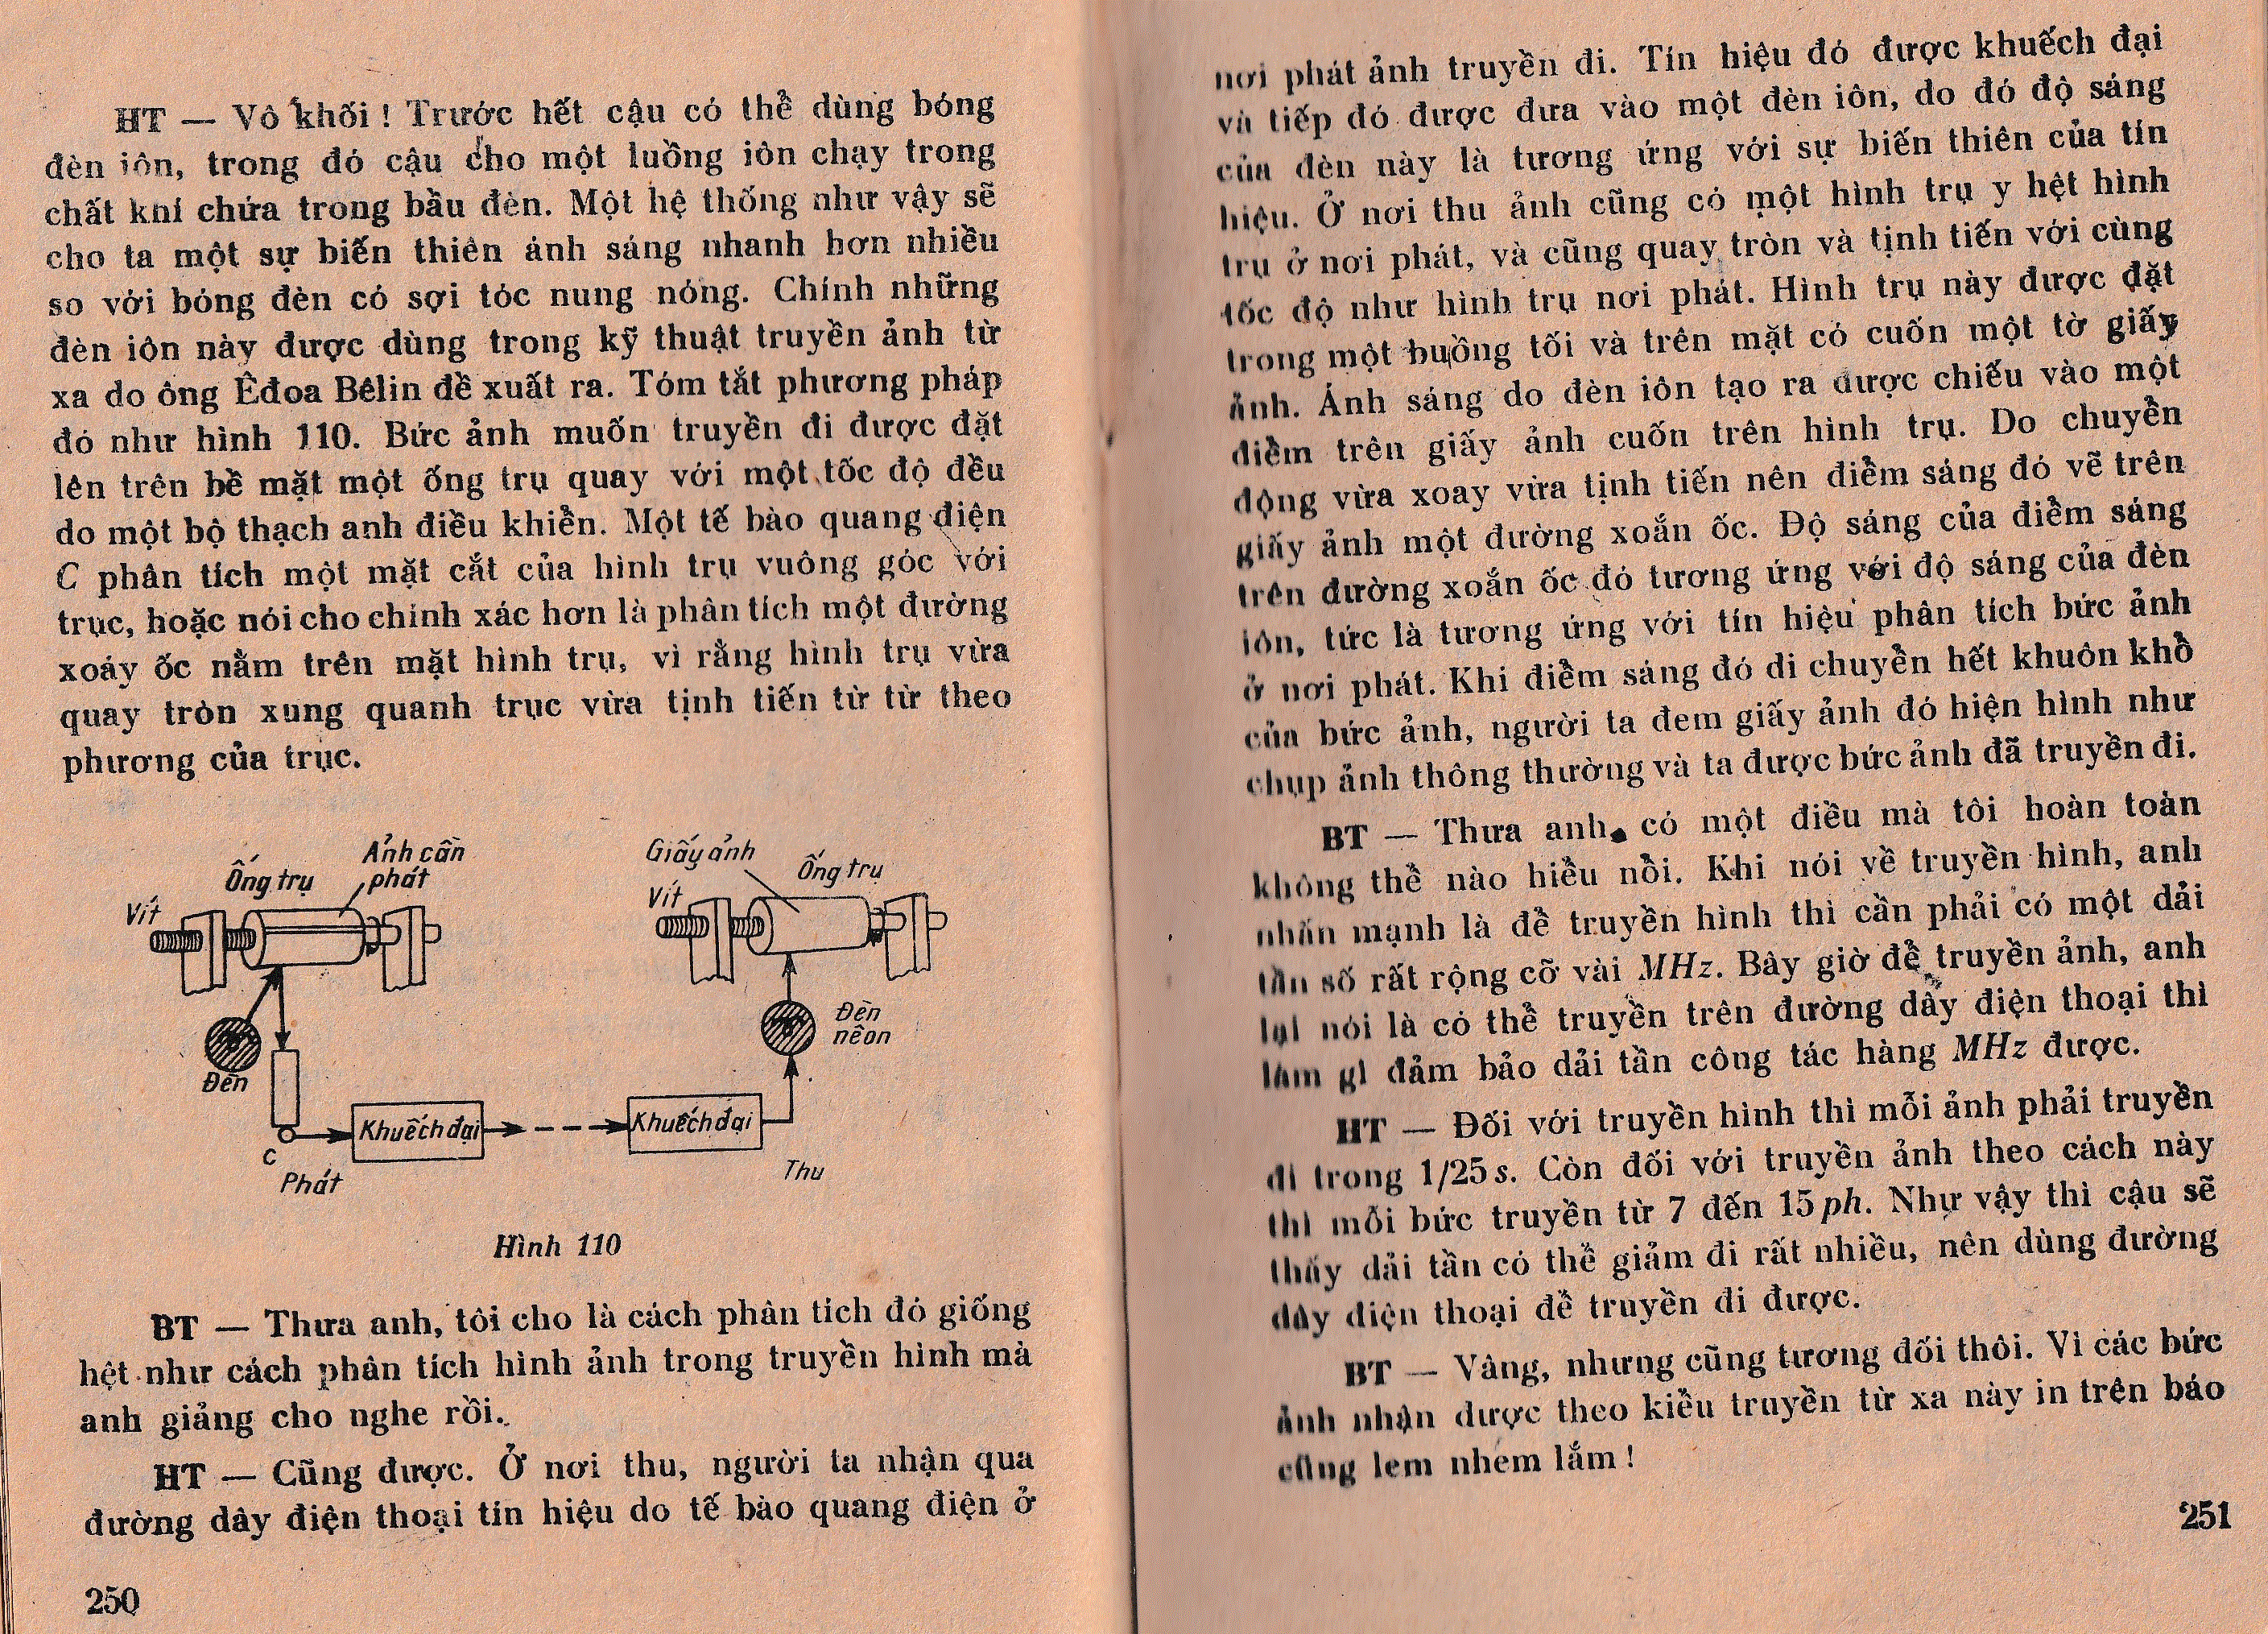 HT — Vô khối ! Trước hết cậu có thể dùng bóng
đèn iôn, trong đó cậu cho một luồng iôn chạy trong
chất khí chứa trong bầu đèn. Một hệ thống như vậy sẽ
cho ta một sự biến thiên ánh sáng nhanh hơn nhiều
so với bóng đèn có sợi tóc nung nóng. Chính những
đèn iôn này được dùng trong kỹ thuật truyền ảnh từ
xa do ông Êđoa Bêlin đề xuất ra. Tóm tắt phương pháp
đó như hình 110. Bức ảnh muốn truyền đi được đặt
lên trên bề mặt một ống trụ quay với một tốc độ đều
do một bộ thạch anh điều khiển. Một tế bào quang điện
C phân tích một mặt cắt của hình trụ vuông góc với
trục, hoặc nói cho chính xác hơn là phân tích một đường
xoáy ốc nằm trên mặt hình trụ, vì rằng hình trụ vừa
quay tròn xung quanh trục vừa tịnh tiến từ từ theo
phương của trục.
Vít
Ống trụ
Ảnh cần
phát
Giấy ảnh
Vít
Ống trụ
Đèn
Đèn
nêon
Khuếch đại
Khuếch đại
C
Phát
Thu
Hình 110
BT — Thưa anh, tôi cho là cách phân tích đó giống
hệt như cách phân tích hình ảnh trong truyền hình mà
anh giảng cho nghe rồi.
HT — Cũng được. Ở nơi thu, người ta nhận qua
đường dây điện thoại tín hiệu do tế bào quang điện ở
250
nơi phát ảnh truyền đi. Tín hiệu đó được khuếch đại
và tiếp đó được đưa vào một đèn iôn, do đó độ sáng
của đèn này là tương ứng với sự biến thiên của tín
hiệu. Ở nơi thu ảnh cũng có một hình trụ y hệt hình
trụ ở nơi phát, và cũng quay tròn và tịnh tiến với cùng
tốc độ như hình trụ nơi phát. Hình trụ này được đặt
trong một buồng tối và trên mặt có cuốn một tờ giấy
ảnh. Ánh sáng do đèn iôn tạo ra được chiếu vào một
điểm trên giấy ảnh cuốn trên hình trụ. Do chuyển
động vừa xoay vừa tịnh tiến nên điểm sáng đó vẽ trên
giấy ảnh một đường xoắn ốc. Độ sáng của điểm sáng
trên đường xoắn ốc đó tương ứng với độ sáng của đèn
iôn, tức là tương ứng với tín hiệu phân tích bức ảnh
ở nơi phát. Khi điểm sáng đó di chuyển hết khuôn khổ
của bức ảnh, người ta đem giấy ảnh đó hiện hình như
chụp ảnh thông thường và ta được bức ảnh đã truyền đi.
BT — Thưa anh, có một điều mà tôi hoàn toàn
không thể nào hiểu nổi. Khi nói về truyền hình, anh
nhấn mạnh là để truyền hình thì cần phải có một dải
tần số rất rộng cỡ vài MHz. Bây giờ để truyền ảnh, anh
lại nói là có thể truyền trên đường dây điện thoại thì
làm gì đảm bảo dải tần công tác hàng MHz được.
HT — Đối với truyền hình thì mỗi ảnh phải truyền
đi trong 1/25 s. Còn đối với truyền ảnh theo cách này
thì mỗi bức truyền từ 7 đến 15 ph. Như vậy thì cậu sẽ
thấy dải tần có thể giảm đi rất nhiều, nên dùng đường
dây điện thoại để truyền đi được.
BT — Vâng, nhưng cũng tương đối thôi. Vì các bức
ảnh nhận được theo kiểu truyền từ xa này in trên báo
cũng lem nhem lắm !
251